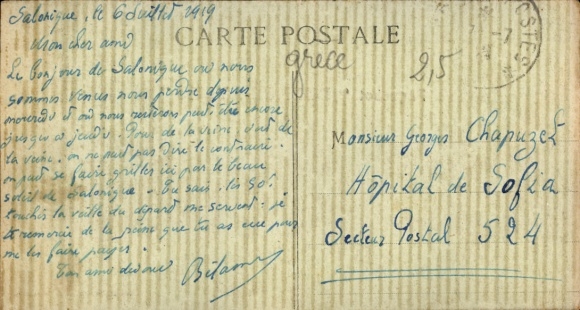 Salonique, le 6 Juillet 1919
Mon cher ami
Le bonjour de Salonique où nous
sommes venus nous perdre depuis
mercredi et où nous resterons peut être encore
jusqu'à jeudi. Pour de la veine, c'est de
la veine, on ne peut pas dire le contraire.
on part se faire griller ici par le beau
soleil de Salonique. Tu sais, les 50
touchés la veille du départ me servent. je
te remercie de la peine que tu as eue pour
me les faire payer.
Ton ami dévoué
CARTE POSTALE
grèce
2,5
POSTES
7-7
Monsieur Georges Chapuzet
Hôpital de Sofia
Secteur Postal 524